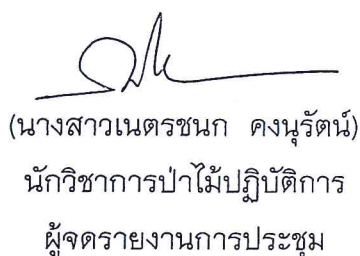 (นางสาวเนตรชนก คงนุรัตน์)
นักวิชาการป่าไม้ปฏิบัติการ
ผู้จดรายงานการประชุม